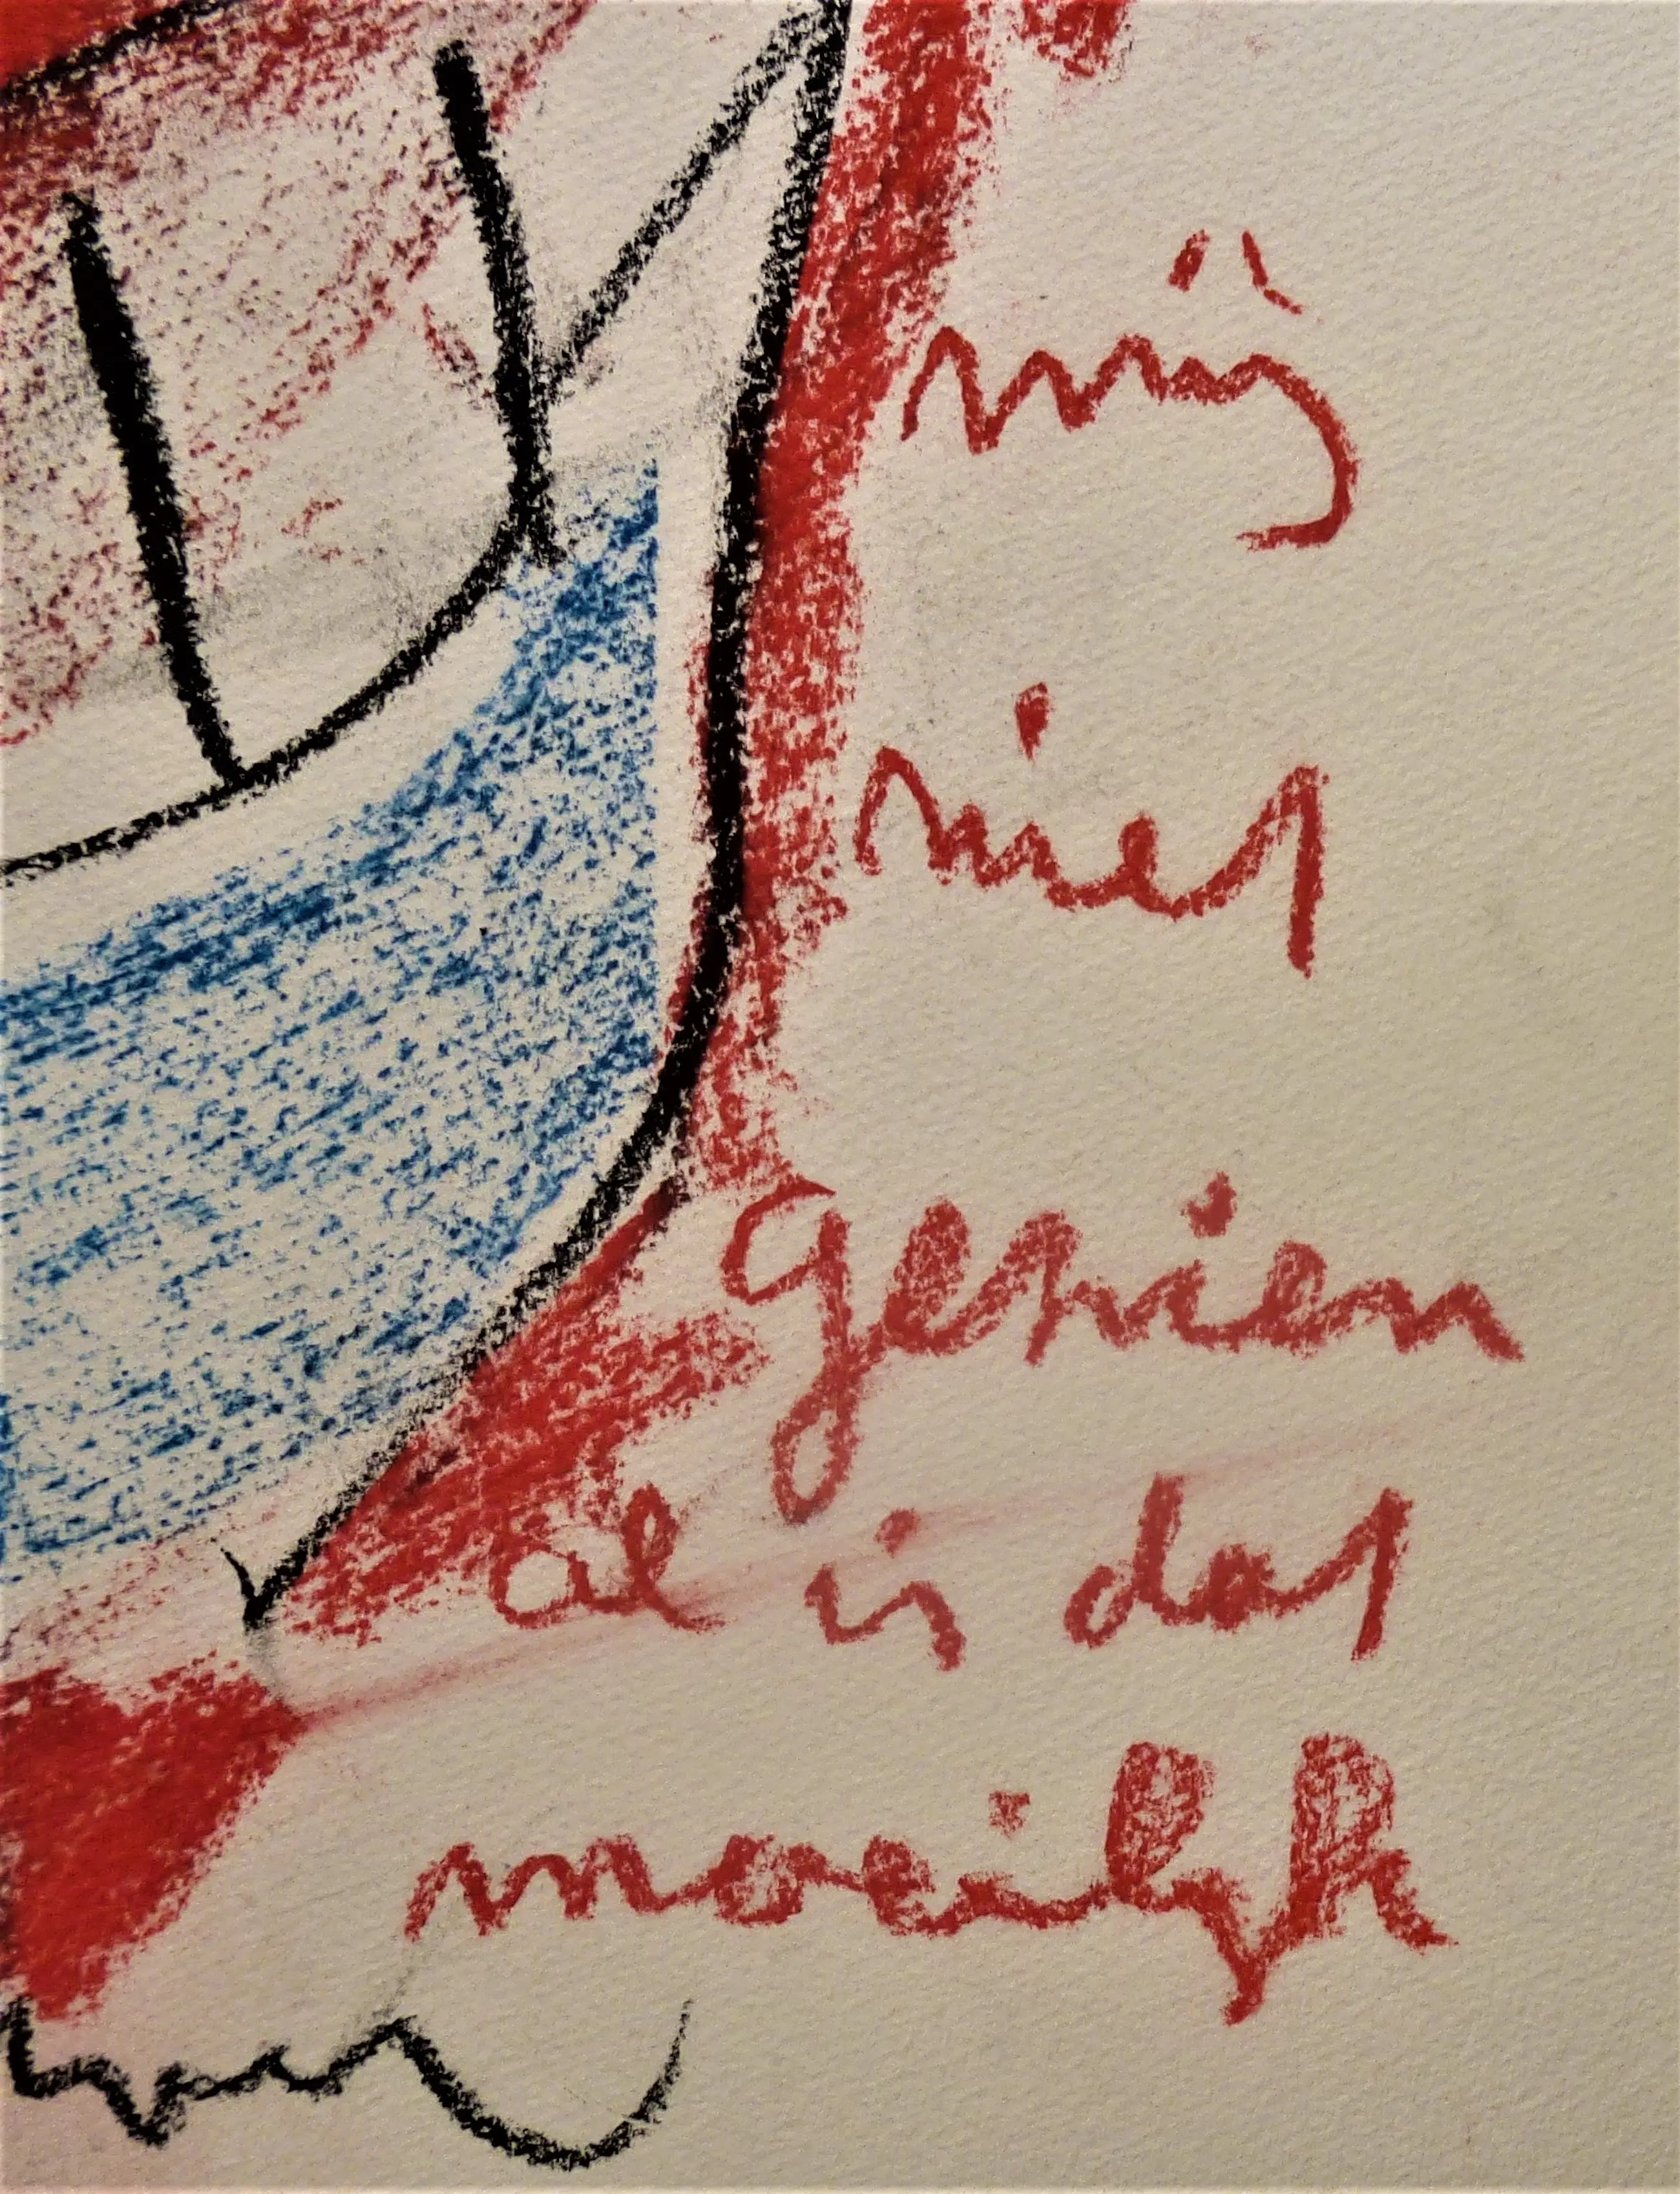 mij
niet
gezien
al is dat
moeilijk